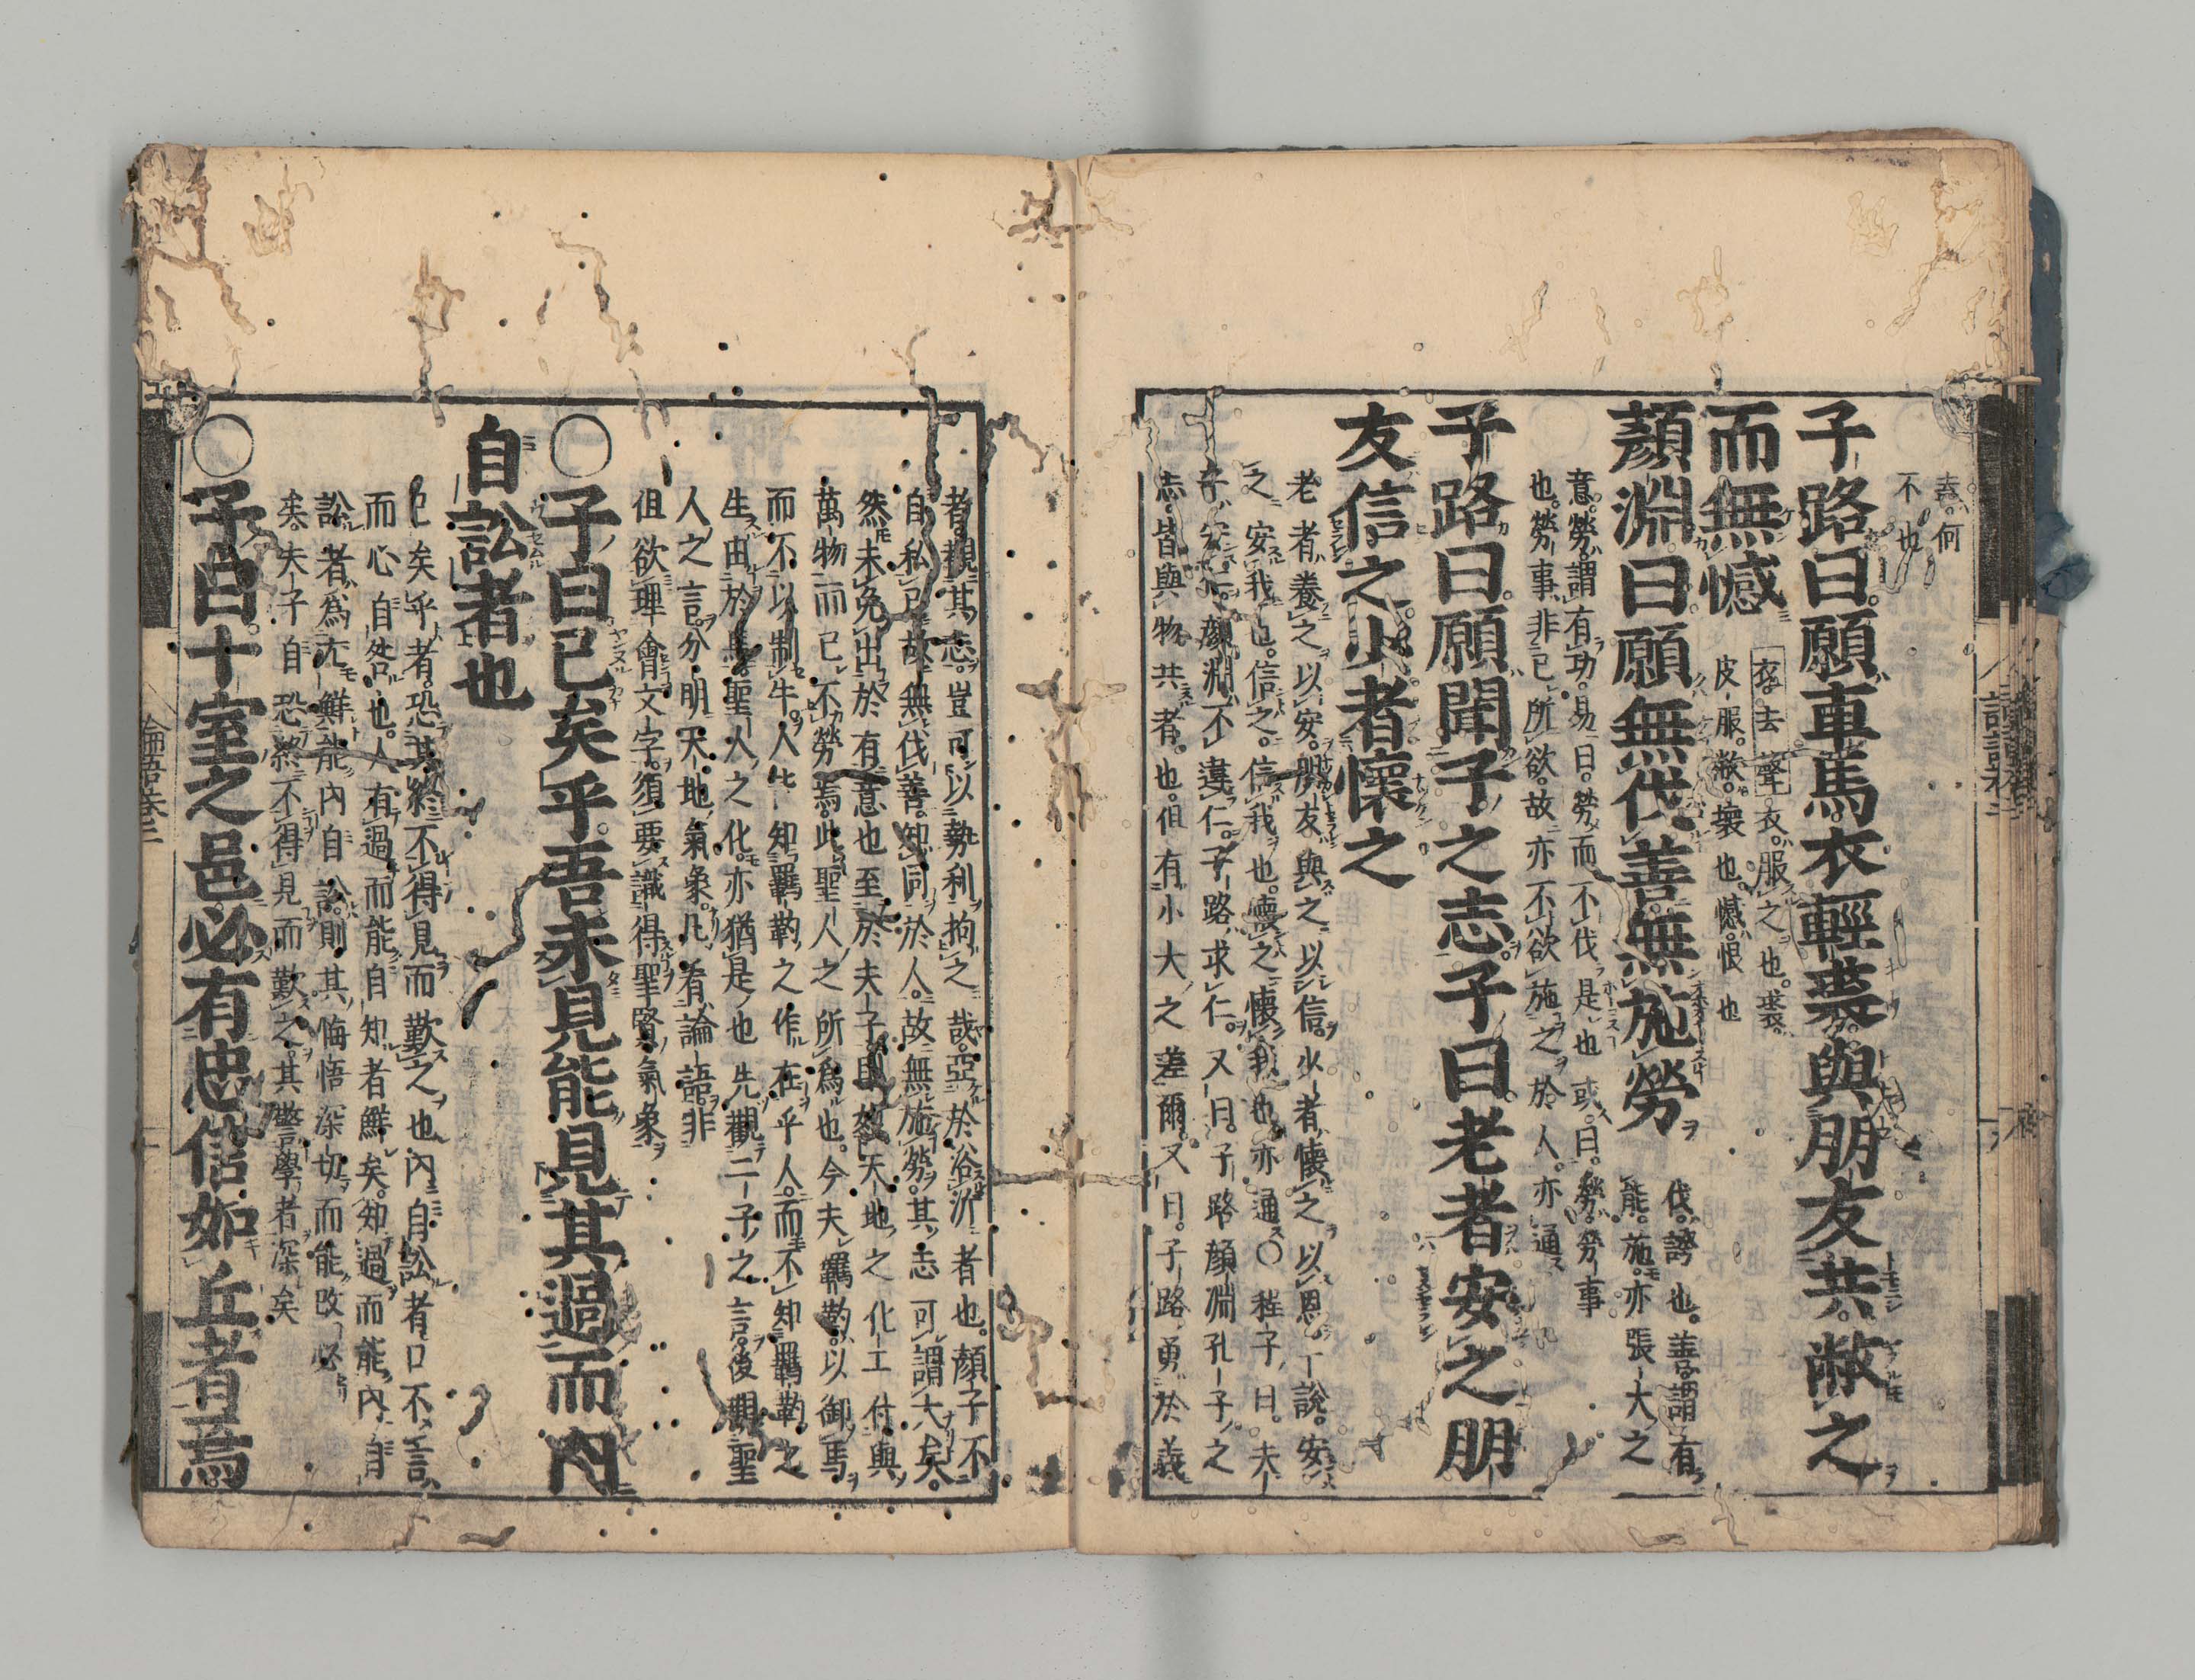 盍。何
不也。
子路曰。願車馬衣輕裘。與朋友共。敝之
而無憾
衣。去聲。衣。服之也。裘。
皮服。敝。壞也。憾。恨也
顏淵曰。願無伐善。無施勞
伐。誇也。善。謂有
能。施。亦張大之
意。勞。謂有功。易曰。勞而不伐是也或。曰。勞。勞事
也。勞事非己所欲。故亦不欲施之於人。亦通
子路曰。願聞子之志。子曰。老者安之朋
友信之。少者懷之
老者養之以安。朋友與之以信。少者懷之以恩一說。安
之安我也。信之。信我也。懷之懷我也。亦通○程子曰。夫
子安仁。顏淵不違仁。子路求仁。又曰。子路顏淵孔子之
志。皆與物共者。也。但有小大之差爾。又曰。子路勇於義
者。觀其志。豈可以勢利拘之哉。亞於浴沂者也。顏子不
自私己。故無伐善。知同於人。故無施勞。其志可謂大矣。
然未免出於有意也至於夫子。則如天地之化工付與
萬物而已不勞焉。此聖人之所為也。今夫羈靮以御馬
而不以制牛。人皆知羈靮之作在乎人。而不知羈靮之
生由於馬。聖人之化。亦猶是也先觀二子之言。後觀聖
人之言。分明天地氣象。凡看論語。非
但欲理會文字。須要識得聖賢氣象
○子曰已矣乎。吾未見能見其過而內
自訟者也
已矣乎者。恐其終不得見而歎之也內自訟者口不言。
而心自咎也。人有過而能自知者鮮矣。知過而能內自
訟者為尤鮮能內自訟。則其悔悟深切而能改必
矣。夫子自恐終不得見而歎之。其警學者深矣
○子曰。十室之邑。必有忠信如丘者焉
論語卷三